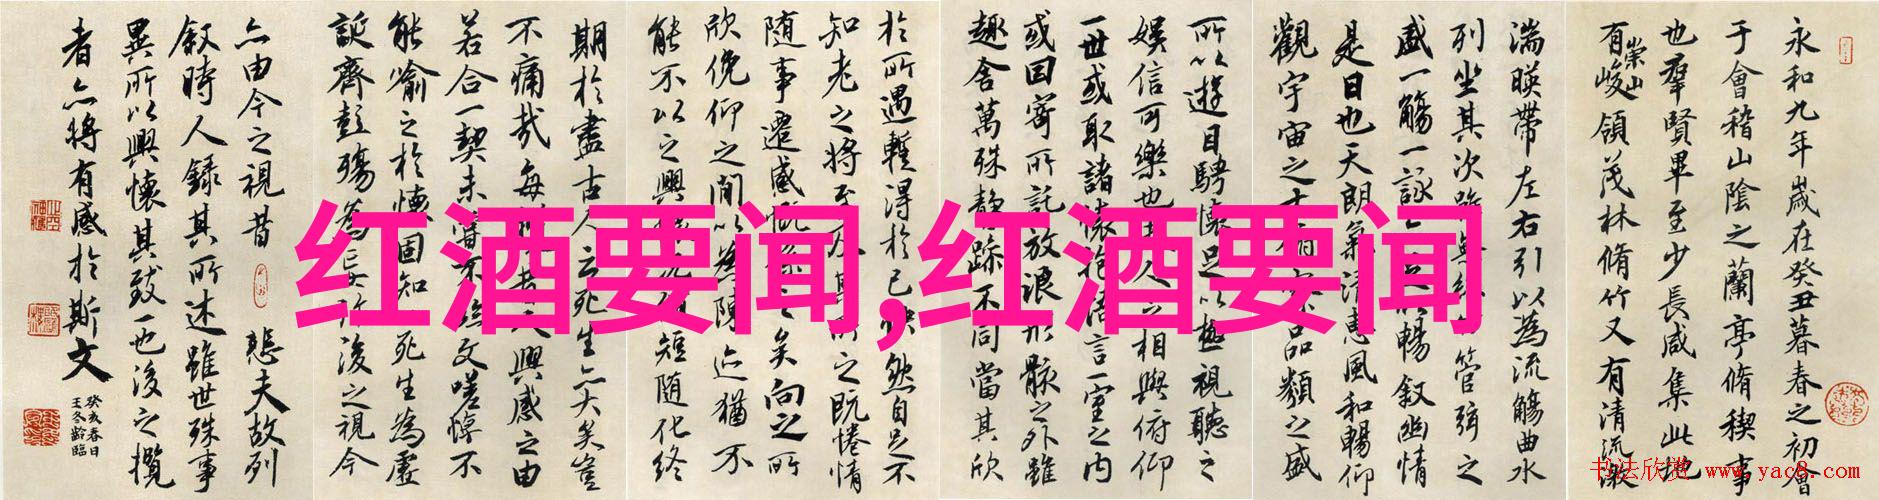 永和九年歲在癸丑暮春之初會
于會稽山陰之蘭亭脩稧事
也羣賢畢至少長咸集此地
有崇山峻領茂林脩竹又有清流激
湍暎帶左右引以為流觴曲水
列坐其次雖無管弦之
盛一觴一詠暢敘幽情
是日也天朗氣清惠風和暢仰
觀宇宙之大品類之盛
所以遊目騁懷足以極視聽之
娛信可樂也夫人之相與俯仰
一世或取諸懷抱悟言一室之內
或因寄所託放浪形骸之外雖
趣舍萬殊靜躁不同當其欣
於所遇暫得於己快然自足不
知老之將至及其所之既惓情
随事遷感慨係之矣向之所
欣俛仰之閒以為陳迹猶不
能不以之興短随化終
期於盡古人云死生亦大矣豈
不痛哉每人興感之由
若合一契未嘗不臨文嗟悼不
能喻之於懷固知死生為虛
誕齊彭殤為後之視今
亦由今之視昔 悲夫故列
敘時人録其所述雖世殊事
異所以興懷其致一也後之攬
者亦將有感於斯文
癸亥春日
王冬齡臨
红酒要闻,红酒要闻
书法欣赏 www.yac8.com